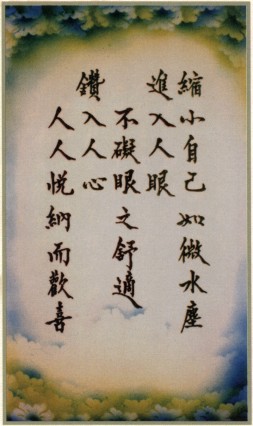 縮小自己如微水塵
進入人眼
不礙眼之舒適
鑽入人心
人人悅納而歡喜